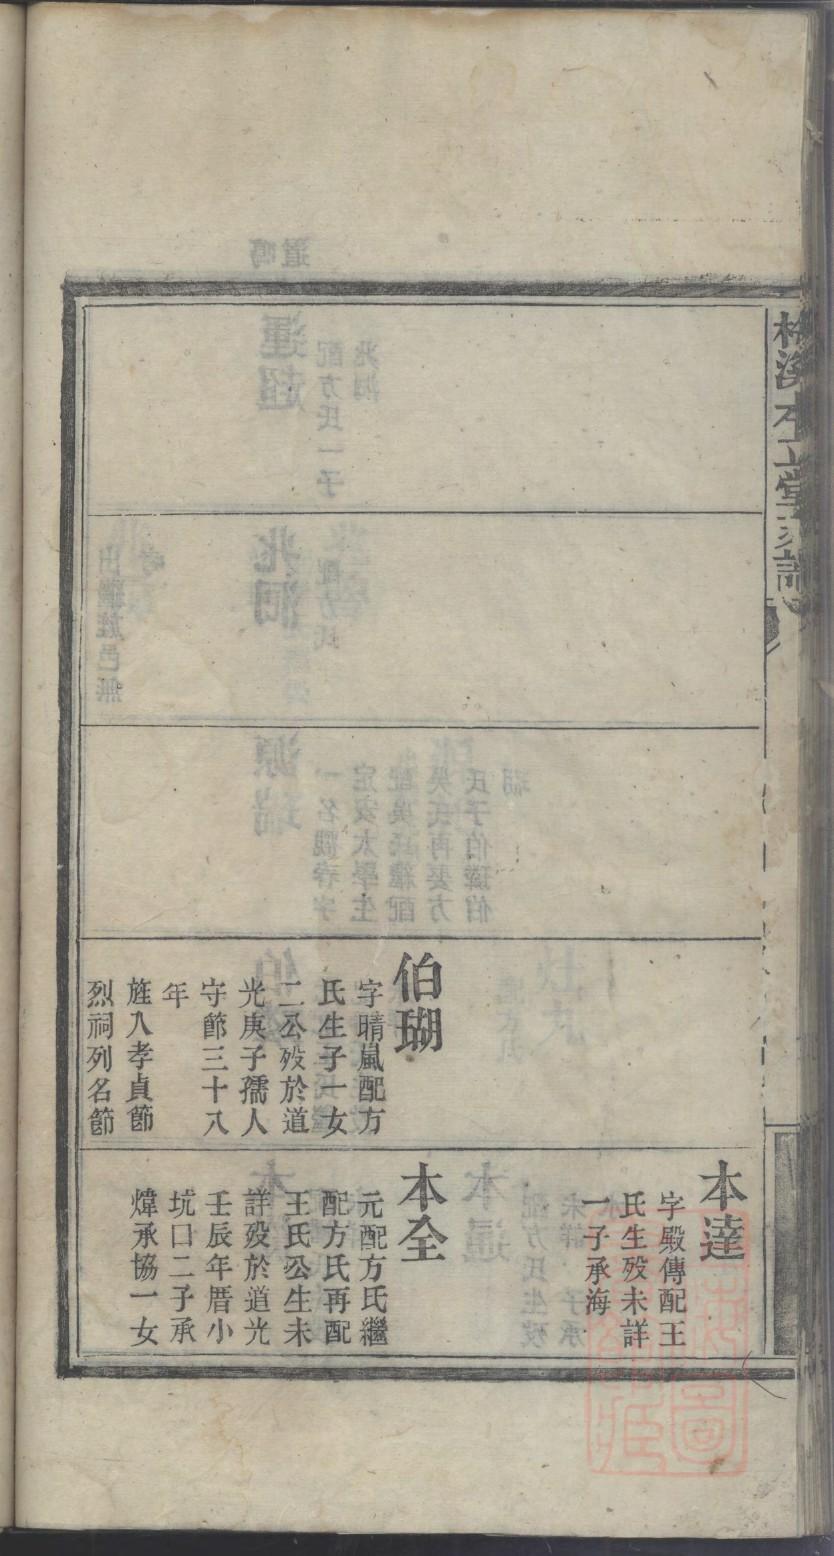 本達
字殿傳配王
氏生歿未詳
一子承海
伯瑚
字晴嵐配方
氏生子一女
二公歿於道
光庚子孺人
守節三十八
年
旌入孝貞節
烈祠列名節
本全
元配方氏繼
配方氏再配
王氏公生未
詳歿於道光
壬辰年厝小
坑口二子承
煒承協一女